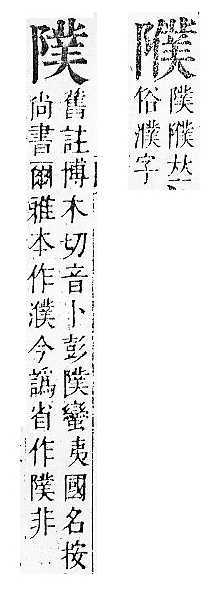 𠀤
俗濮字
舊註博木切音卜彭蠻夷國名按
尚書爾雅本作濮今譌省作非